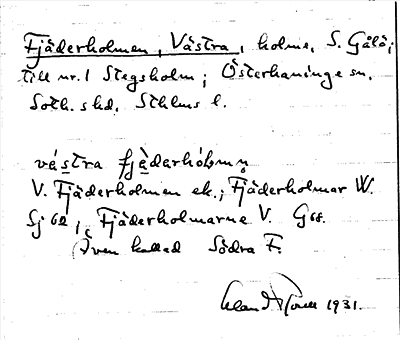 Fjäderholmen, Västra, holme, S. Gålö;
till nr. 1 Stegsholm; Österhaninge sn.
Soth. shd. Sthlms l.
västra fjäderhòlmṇ
V. Fjäderholmen ek.; Fjäderholmar W.
Sj 62; Fjäderholmarne V. G 68.
Även kallad Södra F.
1931.